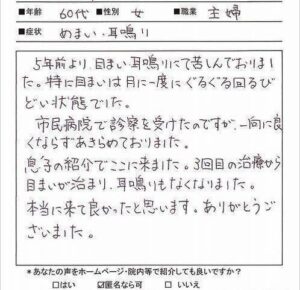 ■年齢 60代 ■性別 女 ■職業 主婦
■症状 めまい・耳鳴り
5年前より、目まい、耳鳴りにて苦しんでおりまし
た。特に目まいは月に一度にぐるぐる回るひ
どい状態でした。
市民病院で診察を受けたのですが、一向に良
くならずあきらめておりました。
息子の紹介でここに来ました。3回目の治療から
目まいが治まり、耳鳴りもなくなりました。
本当に来て良かったと思います。ありがとうご
ざいました。
*あなたの声をホームページ・院内等で紹介しても良いですか?
□はい ☑匿名なら可 □いいえ